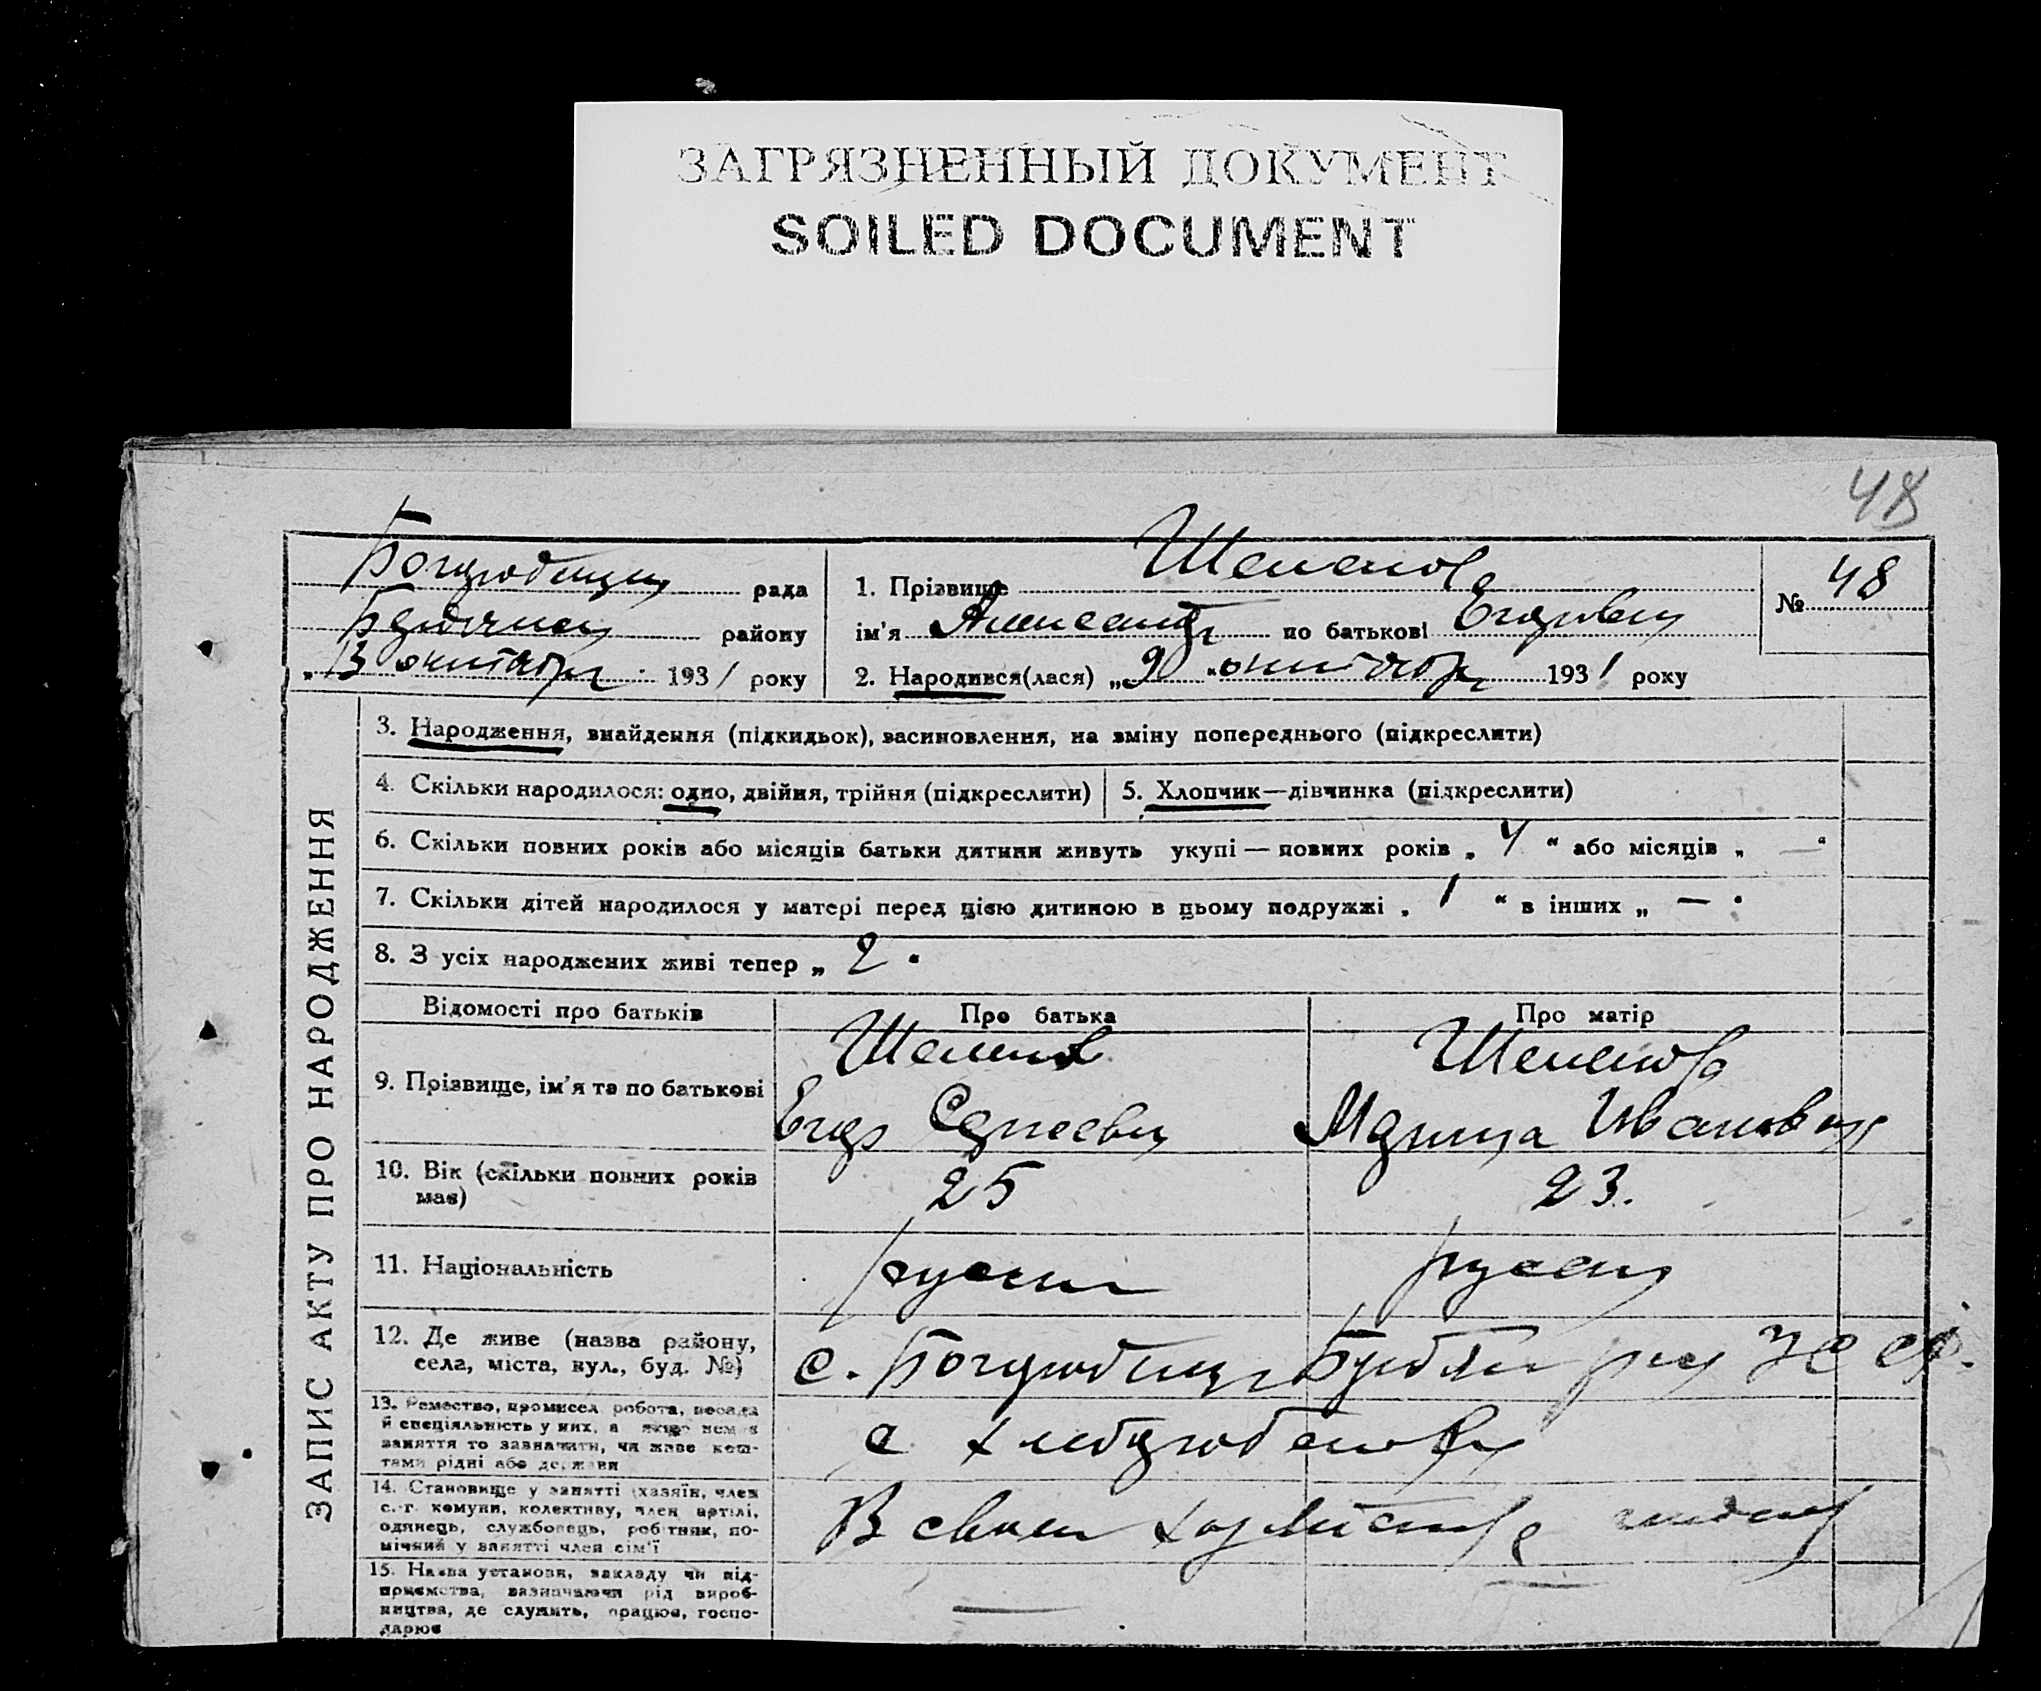 ЗАГРЯЗНЕННЫЙ ДОКУМЕНТ
SOILED DOCUMENT
48
рада
району
13 октября 1931 року
1. Прізвище
ім'я Александр по батькові Егорович
2. Народився(лася) „ “ октября 1931 року
№ 48
ЗАПИС АКТУ ПРО НАРОДЖЕННЯ
3. Народження, знайдення (підкидьок), засиновлення, на зміну попереднього (підкреслити)
4. Скільки народилося: одно, двійня, трійня (підкреслити)
5. Хлопчик—дівчинка (підкреслити)
6. Скільки повних років або місяців батьки дитини живуть укупі — повних років „ 4 “ або місяців „ — “
7. Скільки дітей народилося у матері перед цією дитиною в цьому подружжі „ 1 “ в інших „ — “
8. З усіх народжених живі тепер „ 2 “
Відомості про батьків
Про батька
Про матір
9. Прізвище, ім'я та по батькові
Егор Сергеевич
Марина Ивановна
10. Вік (скільки повних років
має)
25
23.
11. Національність
русский
русская
12. Де живе (назва району,
села, міста, вул., буд. №)
с.
13. Ремество, промисел робота, посада
й спеціяльність у них, а якщо немає
заняття то зазначити, чи живе кош-
тами рідні або держави
14. Становище у занятті (хазяїн, член
с.-г. комуни, колективу, член артілі,
одинець, службовець, робітник, по-
мічний у занятті член сім'ї
В своем хозяйстве
15. Назва установи, закладу чи під-
приємства, зазначаючи рід вироб-
ництва, де служить, працює, госпо-
дарює